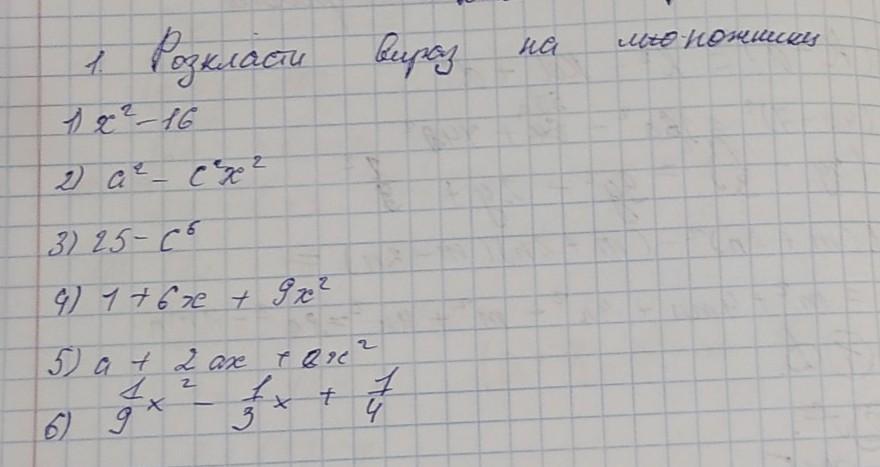 1. Розкласти вираз на множники
1) x² - 16
2) a² - c²x²
3) 25 - c⁶
4) 1 + 6x + 9x²
5) a + 2ax + ax²
6) 1/9 x² - 1/3 x + 1/4